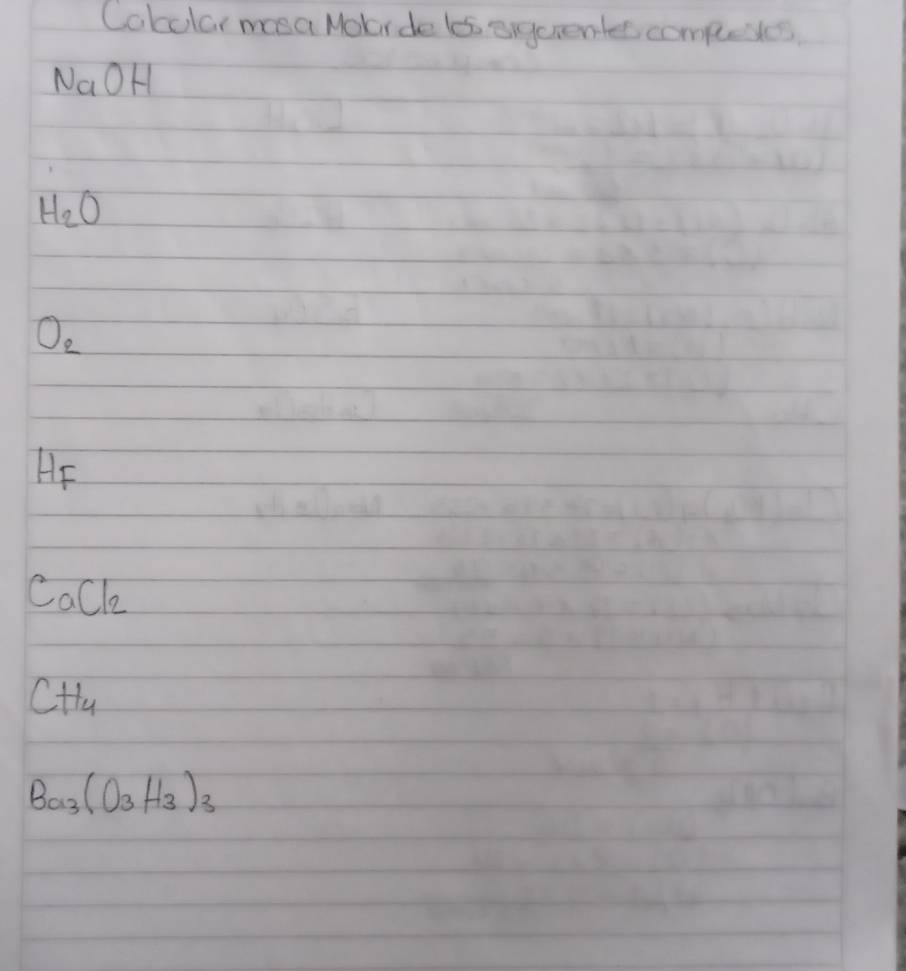 Calcular masa Molar de los siguientes compuestos.
NaOH
H₂O
O₂
HF
CaCl₂
CH₄
Ba₃(O₃H₃)₃